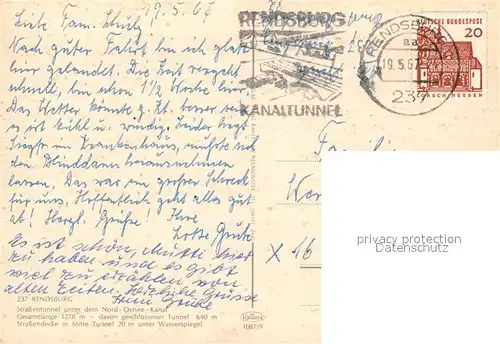 19.5.67
Liebe Fam. Schulz
Nach guter Fahrt bin ich glatt
hier gelandet. Die Zeit vergeht
schnell, bin schon 1½ Woche hier.
Das Wetter könnte z. Zt. besser sein
es ist kühl u. windig. Leider liegt
im Krankenhaus, mußte sich
den Blinddarm herausnehmen
lassen. Das war ein großer Schreck
für uns. Hoffentlich geht alles gut
ab! Herzl. Grüße! Ihre
Lotte
Es ist schön, Mutti hier
zu haben und es gibt
viel zu erzählen von
alten Zeiten. Herzliche Grüsse
237 RENDSBURG
Straßentunnel unter dem Nord-Ostsee-Kanal
Gesamtlänge 1278 m - davon geschlossener Tunnel 640 m
Straßendecke in Mitte Tunnel 20 m unter Wasserspiegel
RENDSBURG
KANALTUNNEL
RENDSBURG
aa
19.5.67
23
DEUTSCHE BUNDESPOST
20
LORSCH/HESSEN
Familie
X 16
Krüger
1087/9
privacy protection
Datenschutz